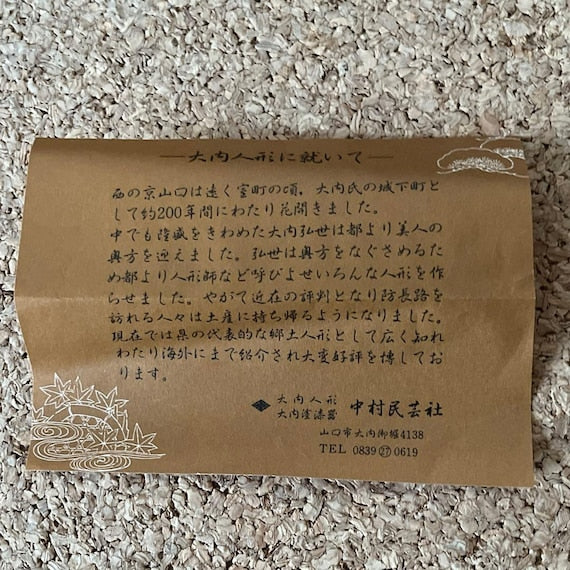 ―大内人形に就いて―
西の京山口は遠く室町の頃，大内氏の城下町と
して約200年間にわたり花開きました。
中でも隆盛をきわめた大内弘世は都より美人の
奥方を迎えました。弘世は奥方をなぐさめるた
め都より人形師など呼びよせいろんな人形を作
らせました。やがて近在の評判となり防長路を
訪れる人々は土産に持ち帰るようになりました。
現在では県の代表的な郷土人形として広く知れ
わたり海外にまで紹介され大変好評を博してお
ります。
大内人形
大内塗漆器 中村民芸社
山口市大内御堀4138
TEL 0839㉗0619